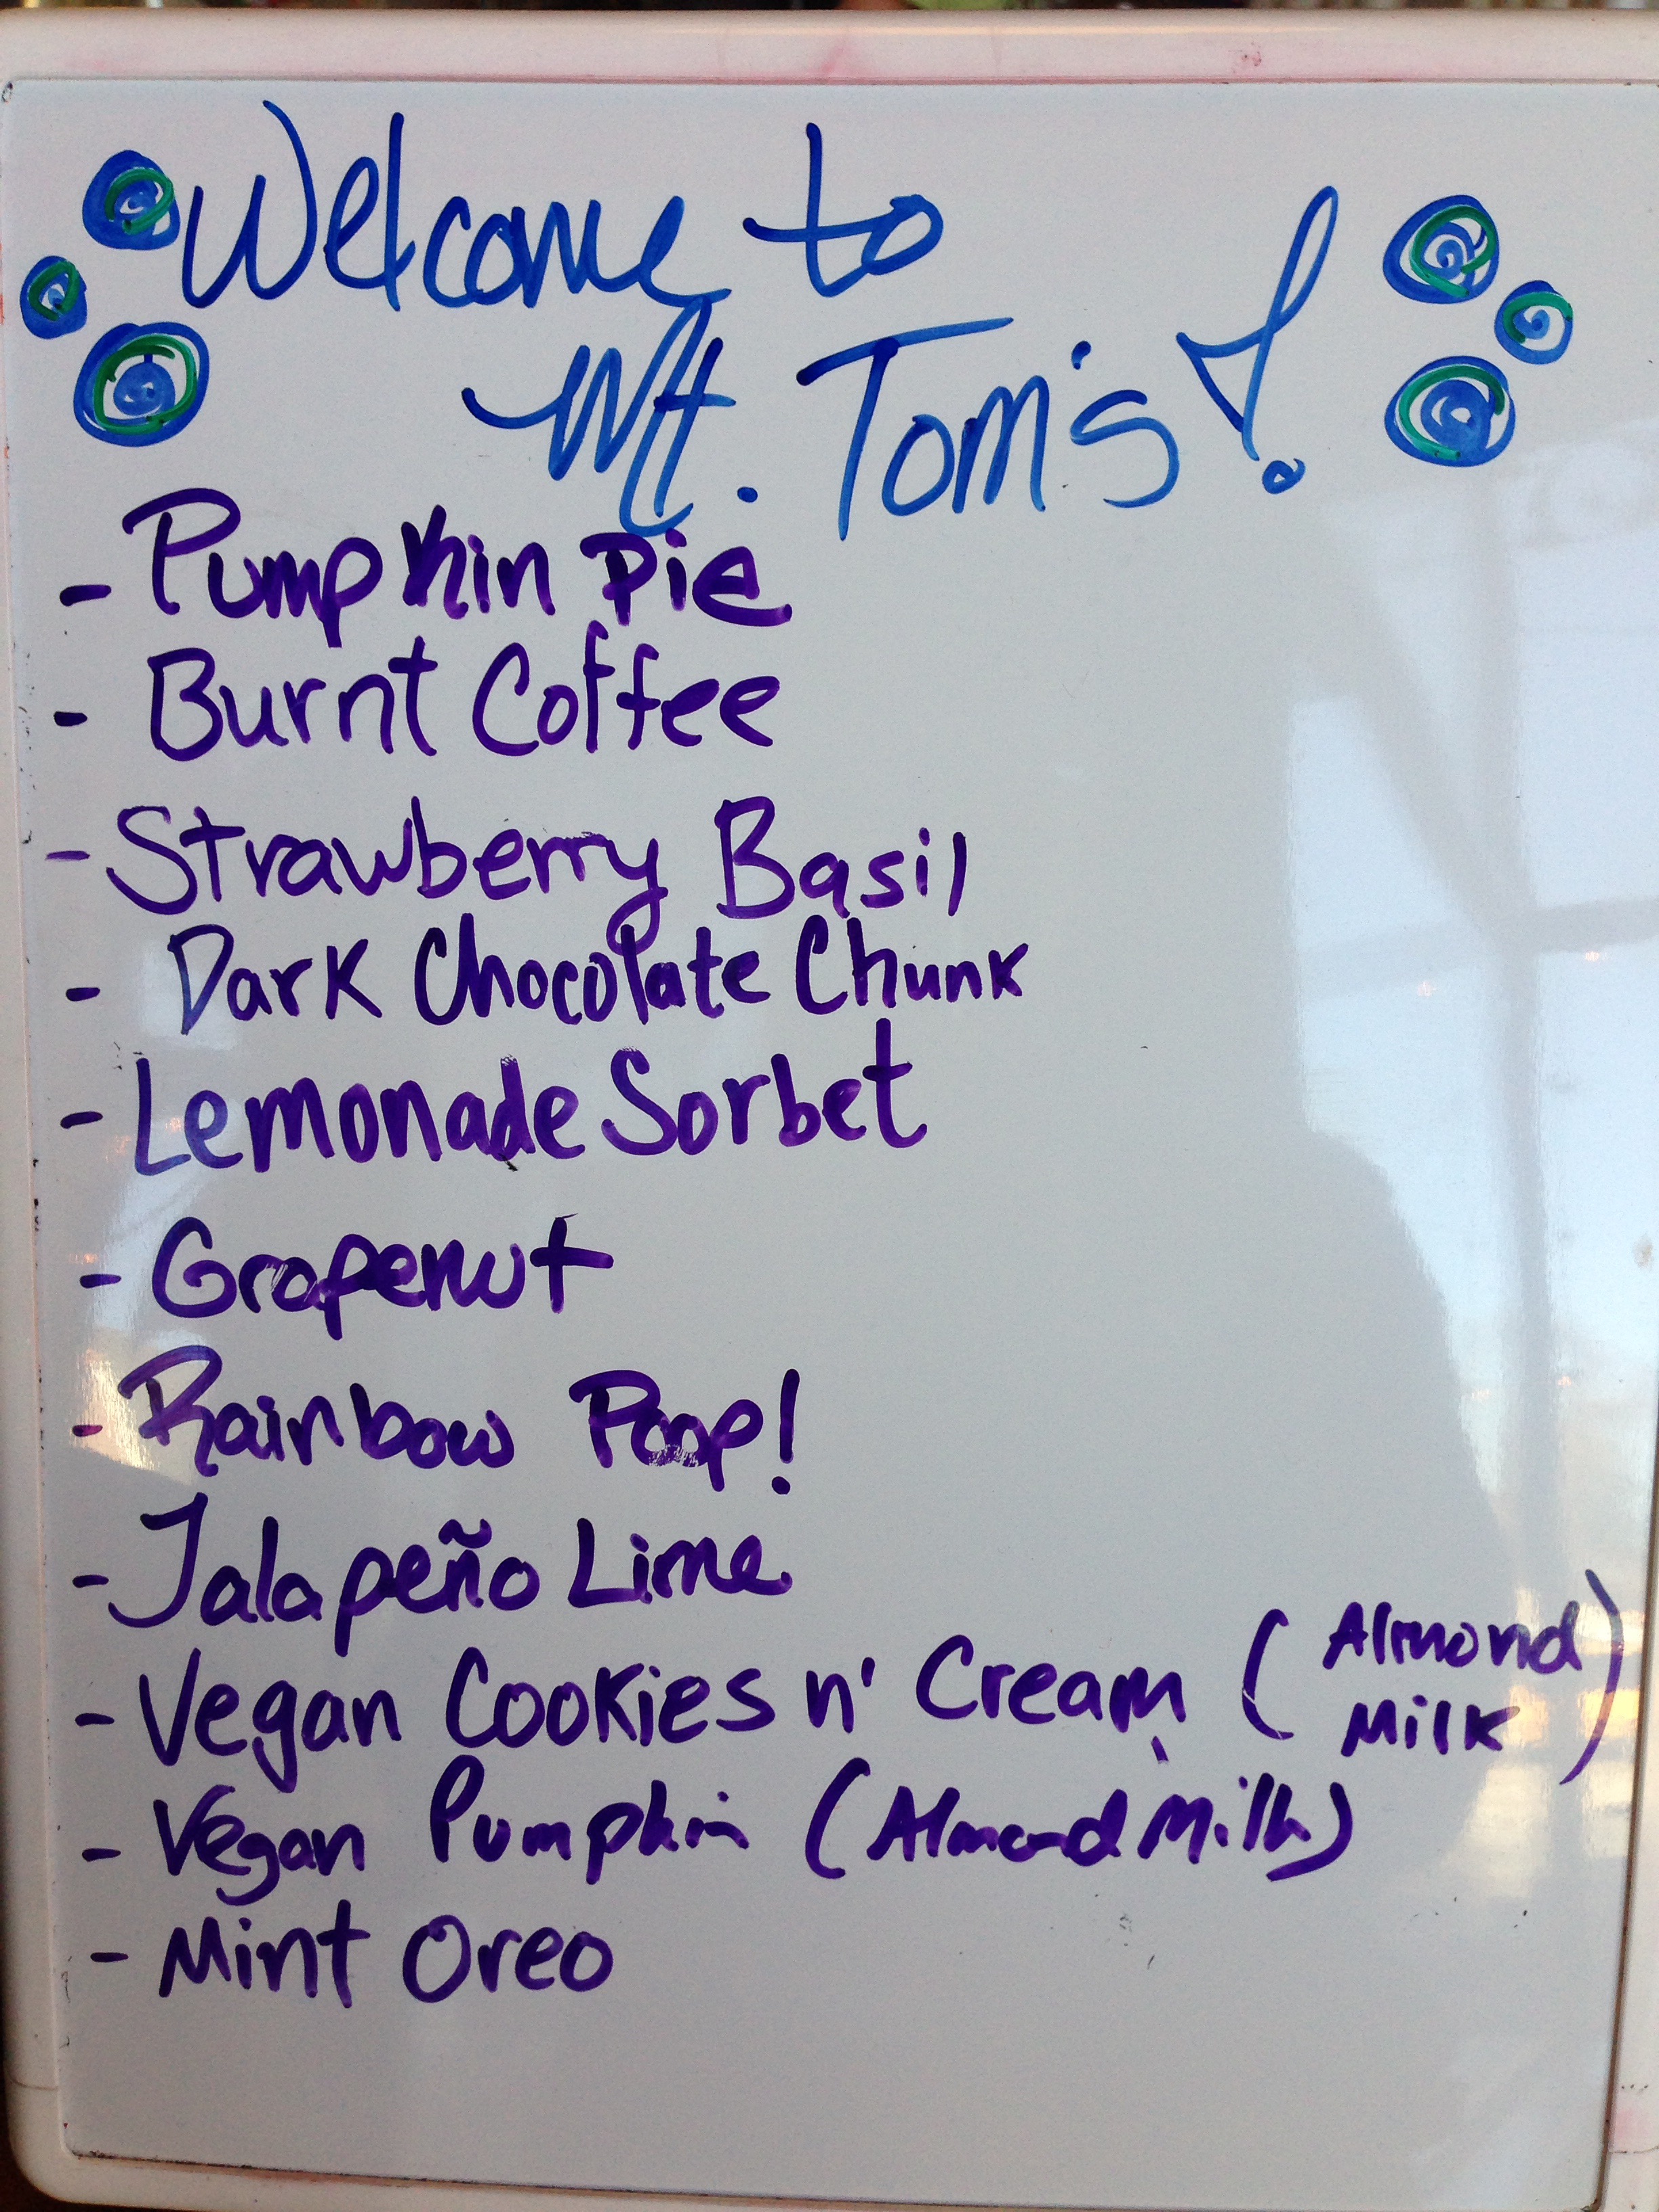 Welcome to
Mt. Tom's!
- Pumpkin Pie
- Burnt Coffee
- Strawberry Basil
- Dark Chocolate Chunk
- Lemonade Sorbet
- Grapenut
- Rainbow Poop!
- Jalapeño Lime
- Vegan Cookies n' Cream (Almond Milk)
- Vegan Pumpkin (Almond Milk)
- Mint Oreo